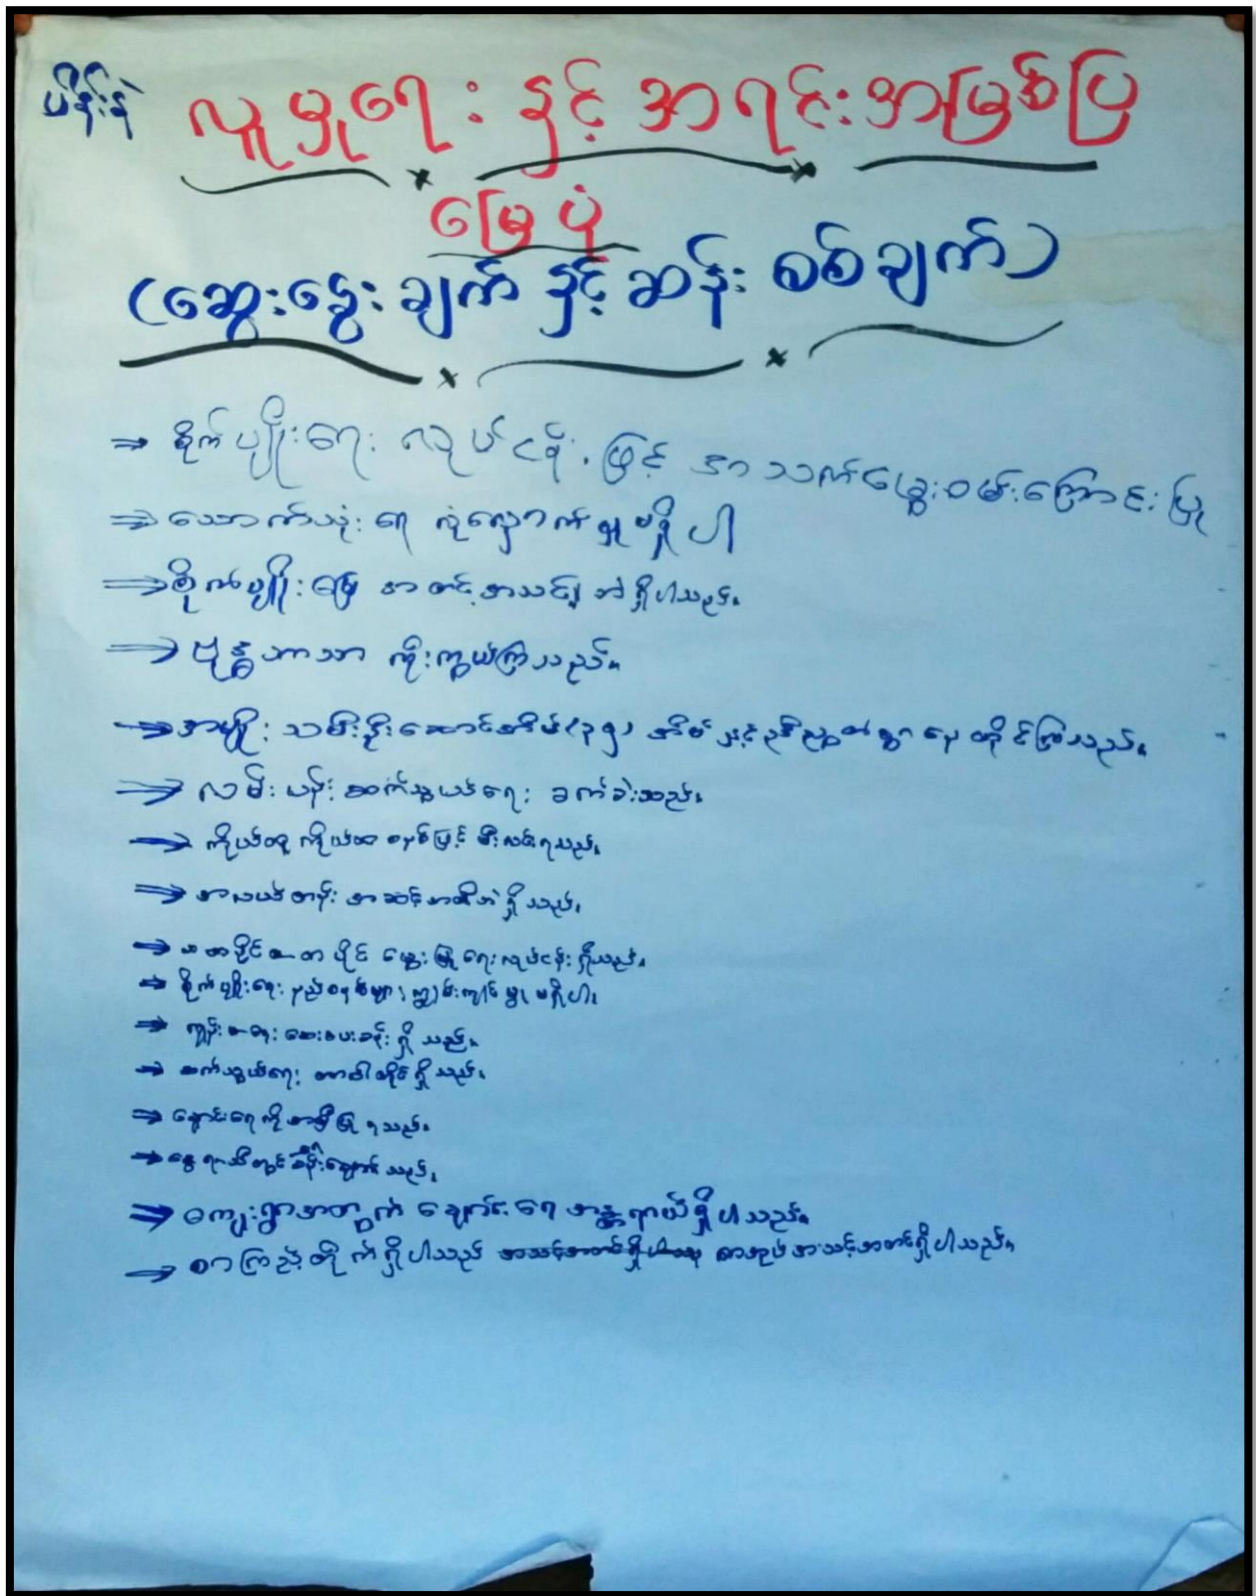 ပိန်းနဲ
လူမှုရေး နှင့် အရင်းအမြစ်ပြ
မြေပုံ
(ဆွေးနွေးချက် နှင့် ဆန်းစစ်ချက်)
⇒ စိုက်ပျိုးရေး လုပ်ငန်းဖြင့် အသက်မွေးဝမ်းကြောင်းပြု
⇒ သောက်သုံးရေ လုံလောက်မှုမရှိပါ
⇒ စိုက်ပျိုးမြေ အတင့်အသင့်ဘဲ ရှိပါသည်။
⇒ ဗုဒ္ဓဘာသာ ကိုးကွယ်ကြသည်။
⇒ အမျိုးသမီးဦးဆောင်အိမ်(၃၅)အိမ် နှင့်ညီညွတ်စွာ နေထိုင်ကြသည်။
⇒ လမ်းပန်းဆက်သွယ်ရေး ခက်ခဲသည်။
⇒ ကိုယ်ထူကိုယ်ထ စနစ်ဖြင့် မီးလင်းရသည်။
⇒ အလယ်တန်း အဆင့်အထိဘဲ ရှိသည်။
⇒ မွေးမြူရေးလုပ်ငန်း ရှိသည်။
⇒ စိုက်ပျိုးရေး နည်းစနစ်များ ကျွမ်းကျင်မှု မရှိပါ။
⇒ ကျန်းမာရေး ဆေးပေးခန်း ရှိသည်။
⇒ ဆက်သွယ်ရေး တာဝါတိုင် ရှိသည်။
⇒ ချောင်းရေကို အမှီပြုရသည်။
⇒ နွေရာသီတွင် ခန်းခြောက်သည်။
⇒ ကျေးရွာအတွက် ချောင်းရေ အန္တရာယ်ရှိပါသည်။
⇒ စာကြည့်တိုက်ရှိပါသည် စာအုပ်အသင့်အတင့်ရှိပါသည်။